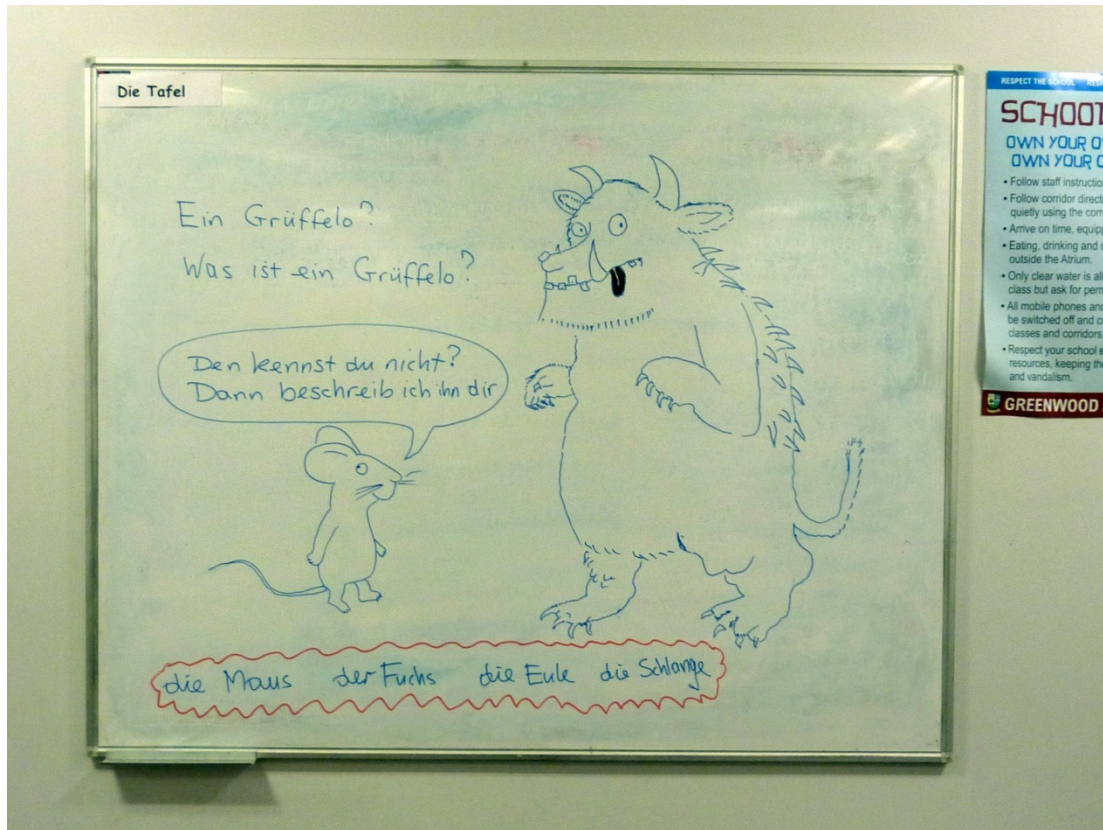 Die Tafel
Ein Grüffelo?
Was ist ein Grüffelo?
Den kennst du nicht?
Dann beschreib ich ihn dir
die Maus der Fuchs die Eule die Schlange
RESPECT THE SCHOOL
SCHOOL
OWN YOUR
OWN YOUR
• Follow staff
• Follow corridor
quietly using the
• Arrive on time,
• Eating, drinking and
outside the Atrium.
• Only clear water is
class but ask for
• All mobile phones and
be switched off and
classes and corridors
• Respect your school
resources, keeping
and vandalism.
GREENWOOD